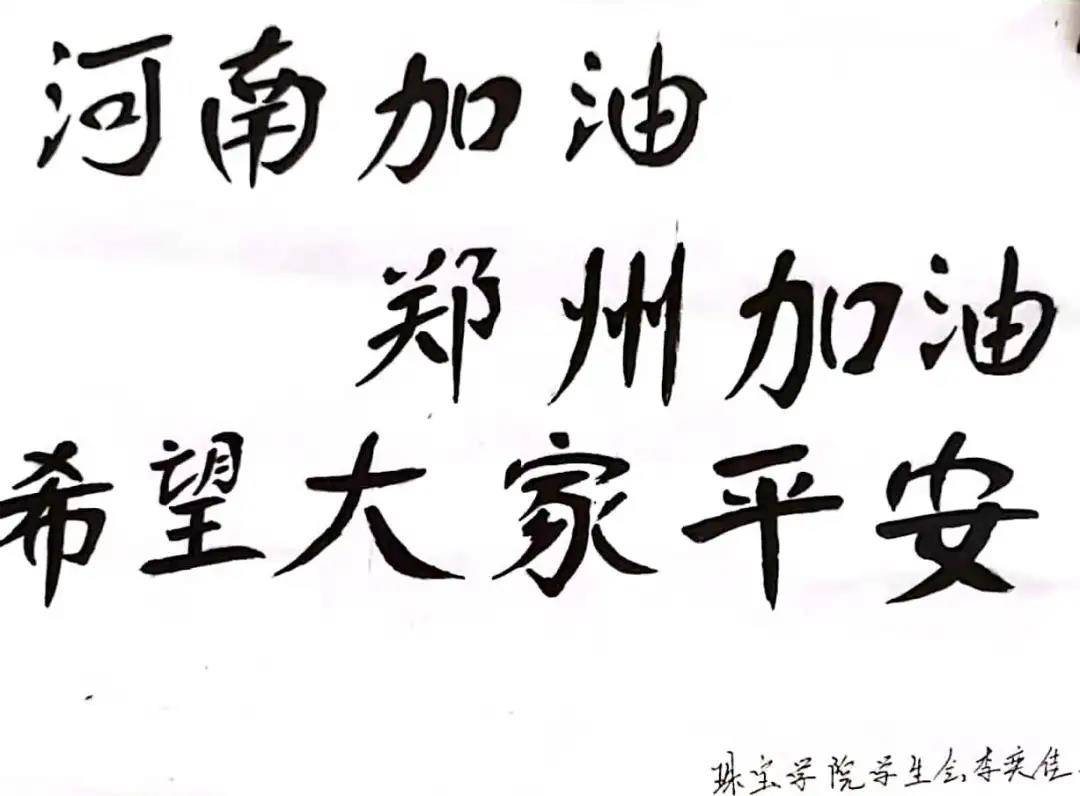 河南加油
郑州加油
希望大家平安
珠宝学院学生会李奕佳